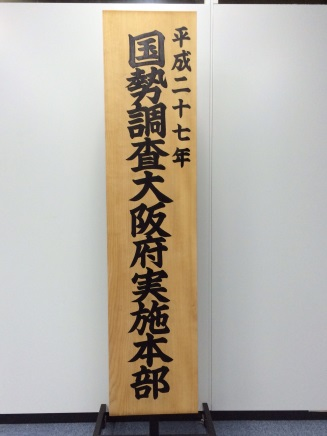 平成二十七年
国勢調査大阪府実施本部